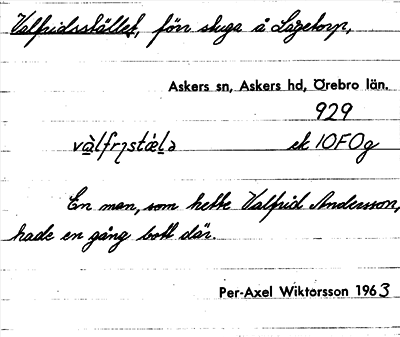 Valfridsstället, förr stuga å Lagetorp,
Askers sn, Askers hd, Örebro län.
929
vàlfrɿstǽlə ek 10F0g
En man, som hette Valfrid Andersson,
hade en gång bott där.
Per-Axel Wiktorsson 1963